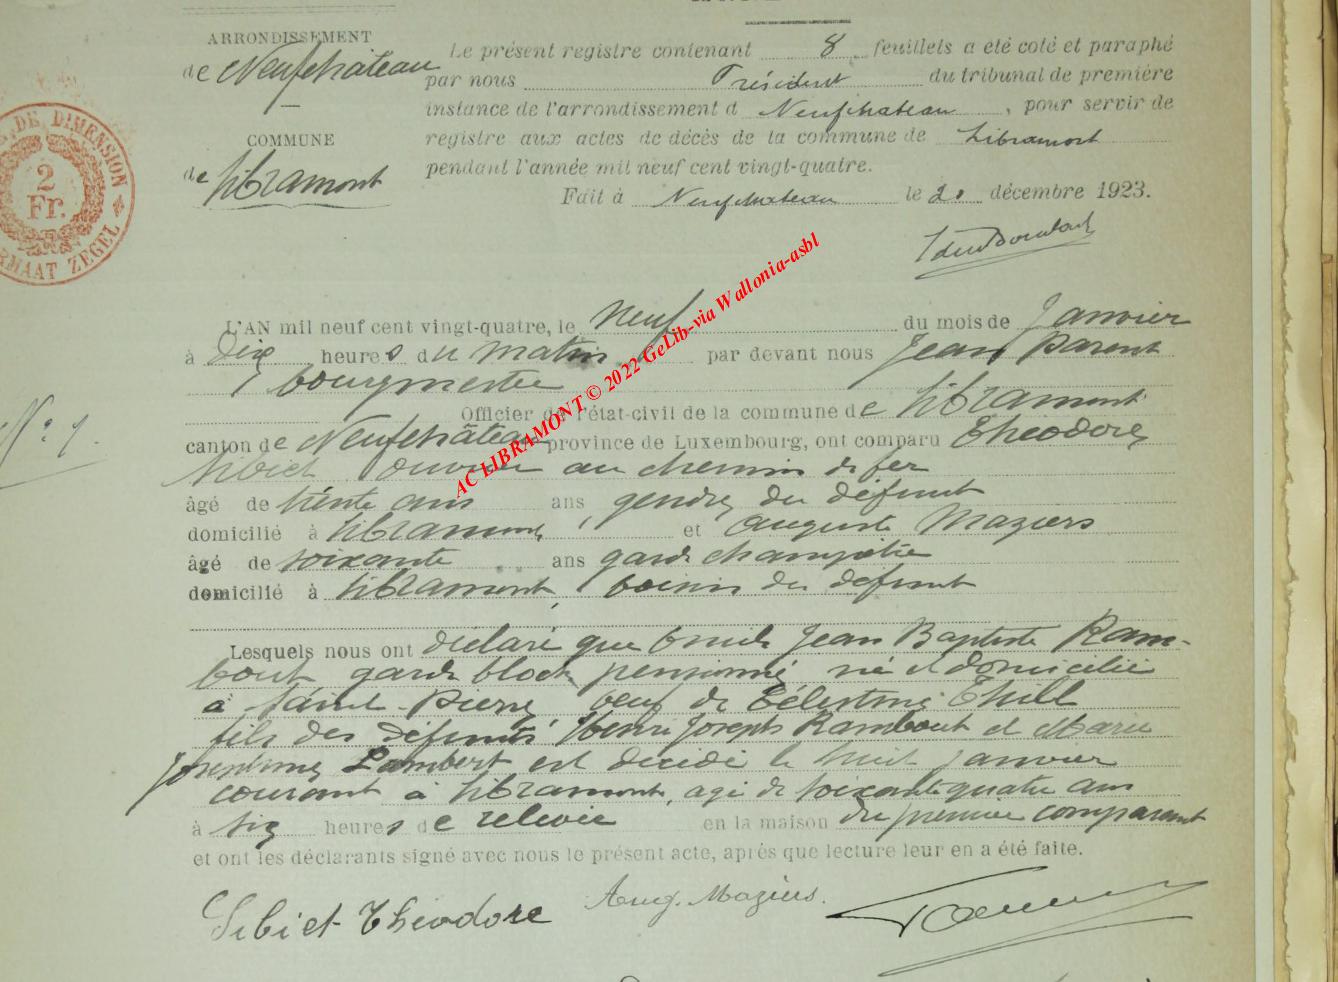 ARRONDISSEMENT
de Neufchâteau
Le présent registre contenant 8 feuillets a été coté et paraphé
par nous Président du tribunal de première
instance de l'arrondissement d Neufchateau, pour servir de
COMMUNE
registre aux actes de décès de la commune de Libramont
de Libramont
pendant l'année mil neuf cent vingt-quatre.
Fait à Neufchateau le 20 décembre 1923.
DE DIMENSION
2
Fr.
ZEGEL
L'AN mil neuf cent vingt-quatre, le neuf du mois de Janvier
à dix heures du matin par devant nous Jean Parent
bourgmestre
Officier de l'état-civil de la commune de Libramont
N° 1.
canton de Neufchâteau province de Luxembourg, ont comparu Théodore
Sibiet ouvrier au chemin de fer
âgé de trente ans ans, gendre du défunt
domicilié à Libramont et Auguste Maziers
âgé de soixante ans garde champêtre
domicilié à Libramont, voisin du défunt
Lesquels nous ont déclaré que Jean Baptiste Ram-
bout garde block pensionné né et domicilié
à Saint-Pierre veuf de Célestine Thill
fils des défunts Henri Joseph Rambout et Marie
Joséphine Lambert est décédé le huit janvier
courant à Libramont, agé de soixante quatre ans
à six heures de relevée en la maison du premier comparant
et ont les déclarants signé avec nous le présent acte, après que lecture leur en a été faite.
Sibiet Théodore
Aug. Maziers.
AC LIBRAMONT © 2022 GeLib-via Wallonia-asbl